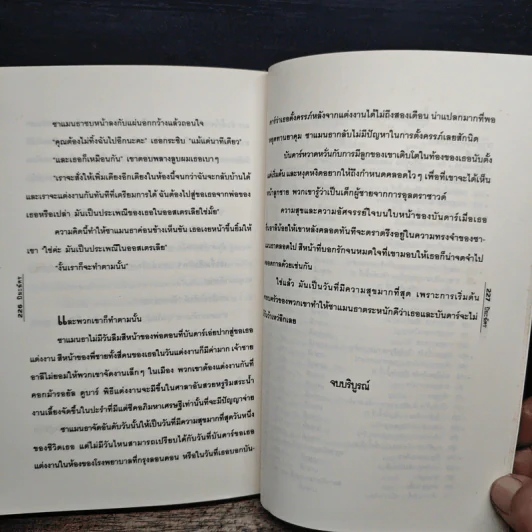 ชาแมนธาซบหน้าลงกับแผ่นอกกว้างแล้วถอนใจ
"คุณต้องไม่ทิ้งฉันไปอีกนะคะ" เธอกระซิบ "แม้แต่นาทีเดียว"
"และเธอก็เหมือนกัน" เขาตอบพลางลูบผมเธอเบาๆ
"เราจะสั่งให้เพิ่มเตียงอีกเตียงในห้องนี้จนกว่าฉันจะกลับบ้านได้
และเราจะแต่งงานกันทันทีที่เตรียมการได้ ฉันต้องไปสู่ขอเธอจากพ่อของ
เธอหรือเปล่า มันเป็นประเพณีของเธอในออสเตรเลียใช่มั้ย"
ความคิดนี้ทำให้ชาแมนธาค่อนข้างเห็นขัน เธอเงยหน้าขึ้นยิ้มให้
เขา "ใช่ค่ะ มันเป็นประเพณีในออสเตรเลีย"
"งั้นเราก็จะทำตามนั้น"
และพวกเขาก็ทำตามนั้น
ชาแมนธาไม่มีวันลืมสีหน้าของพ่อตอนที่บันดาร์เอ่ยปากสู่ขอเธอ
แต่งงาน สีหน้าพี่ชายทั้งสี่คนของเธอในวันแต่งงานก็มีค่ามาก เจ้าชาย
อาลีไม่ยอมให้พวกเขาจัดงานเล็กๆ ในเมือง พวกเขาต้องแต่งงานกันที่
คอกม้ารอยัล ดูบาร์ พิธีแต่งงานจะมีขึ้นในศาลาอันสวยหรูริมสระน้ำ
งานเลี้ยงจัดขึ้นในปะรำที่มีแต่ชีคอภิมหาเศรษฐีเท่านั้นที่จะมีปัญญาจ่าย
ชาแมนธาจัดอันดับวันนั้นให้เป็นวันที่มีความสุขมากที่สุดวันหนึ่ง
ของชีวิตเธอ แต่ไม่มีวันไหนสามารถเปรียบได้กับวันที่บันดาร์ขอเธอ
แต่งงานในห้องของโรงพยาบาลที่กรุงลอนดอน หรือในวันที่เธอบอกบัน-
226 ปิยะฉัตร
ดาร์ว่าเธอตั้งครรภ์หลังจากแต่งงานได้ไม่ถึงสองเดือน น่าแปลกมากที่พอ
หยุดทานยาคุม ชาแมนธากลับไม่มีปัญหาในการตั้งครรภ์เลยสักนิด
บันดาร์หวาดหวั่นกับการมีลูกของเขาเติบโตในท้องของเธอนับตั้ง
แต่เริ่มต้น และหงุดหงิดอยากให้ถึงกำหนดคลอดไวๆ เพื่อที่เขาจะได้เห็น
หน้าลูกชาย พวกเขารู้ว่าเป็นเด็กผู้ชายจากการอุลตราซาวด์
ความสุขและความอัศจรรย์ใจบนใบหน้าของบันดาร์เมื่อเธอ
ให้เขาหลังคลอดทันทีจะตราตรึงอยู่ในความทรงจำของชา-
แมนธาตลอดไป สีหน้าที่บอกรักจนหมดใจที่เขามอบให้เธอก็น่าจดจำไป
ตลอดกาลด้วยเช่นกัน
ใช่แล้ว มันเป็นวันที่มีความสุขมากที่สุด เพราะการเริ่มต้น
ครอบครัวของพวกเขาทำให้ชาแมนธาตระหนักดีว่าเธอและบันดาร์จะไม่
อีกเลย
จบบริบูรณ์
227 ปิยะฉัตร